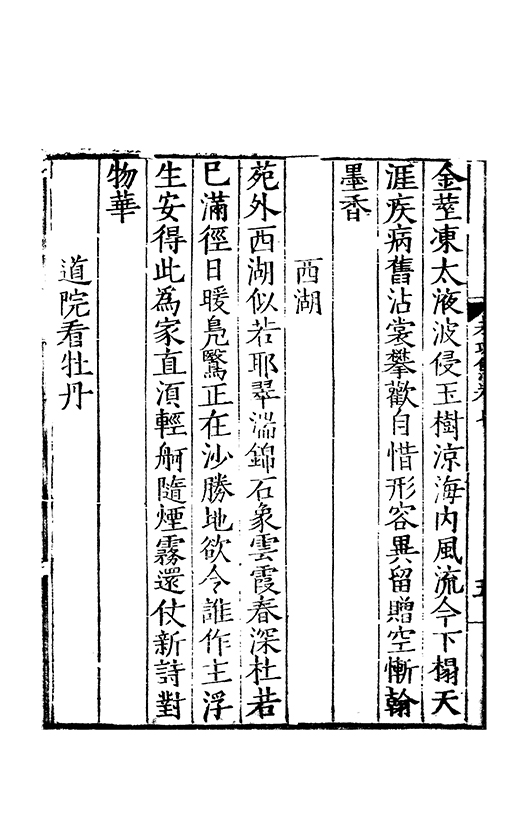 金莖凍太液波侵玉樹涼海內風流今下榻天
涯疾病舊沾裳攀歡自惜形容異留贈空慚翰
墨香
西湖
苑外西湖似若耶翠湍錦石象雲霞春深杜若
已滿徑日暖鳧鷖正在沙勝地欲令誰作主浮
生安得此為家直須輕舸隨煙霧還仗新詩對
物華
道院看牡丹